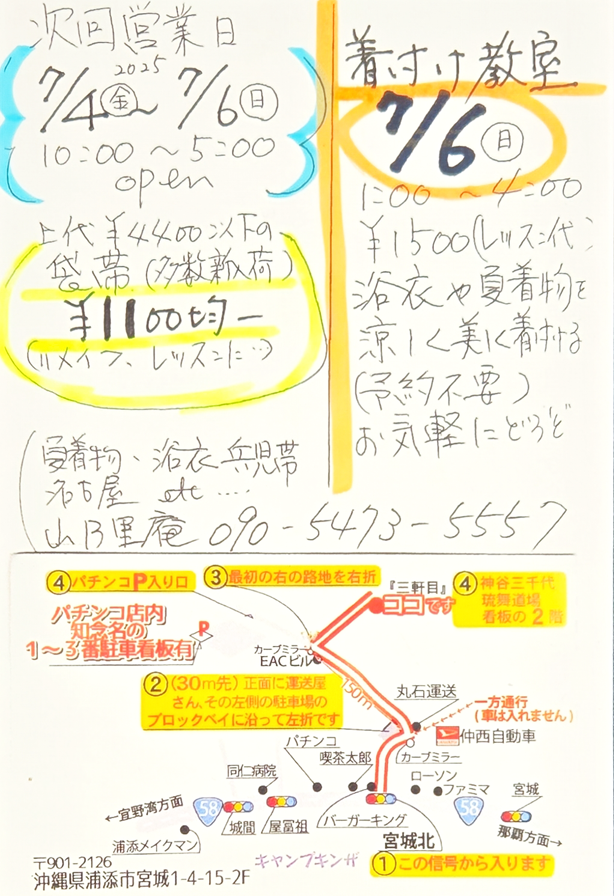 次回営業日
2025
7/4(金)~7/6(日)
10:00~5:00
open
上代¥4400以下の
袋帯(多数新入荷)
¥1100均一
(リメイク、レッスンに…)
着付け教室
7/6(日)
1:00~4:00
¥1500(レッスン代)
浴衣や夏着物を
涼しく美しく着付ける
(予約不要)
お気軽にどうぞ
(夏着物、浴衣 兵児帯
名古屋 etc....
090-5473-5557
④パチンコP入り口
③最初の右の路地を右折
『三軒目』
ココです
④神谷三千代
琉舞道場
看板の2階
パチンコ店内
知念名の
1~3番駐車看板有
P
カーブミラー
EACビル
②(30m先)正面に運送屋
さん、その左側の駐車場の
ブロックベイに沿って左折です
150m
丸石運送
一方通行
(車は入れません)
仲西自動車
カーブミラー
パチンコ
喫茶太郎
同仁病院
ローソン
ファミマ
宮城
←宜野湾方面
58
城間
屋富祖
バーガーキング
58
那覇方面→
浦添メイクマン
宮城北
キャンプキンザー
①この信号から入ります
〒901-2126
沖縄県浦添市宮城1-4-15-2F